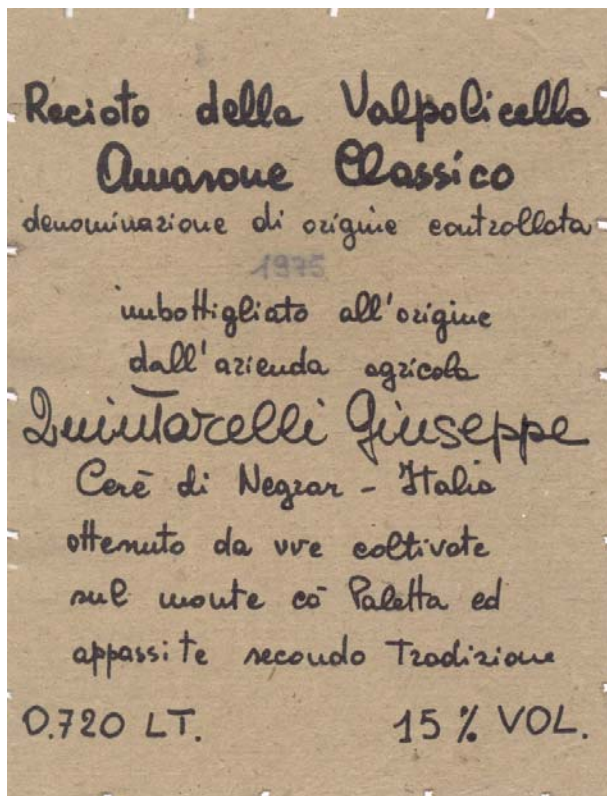 Recioto della Valpolicella
Amarone Classico
denominazione di origine controllata
1975
imbottigliato all'origine
dall'azienda agricola
Quintarelli Giuseppe
Cerè di Negrar - Italia
ottenuto da uve coltivate
sul monte cà Paletta ed
appassite secondo Tradizione
0.720 LT. 15 % VOL.